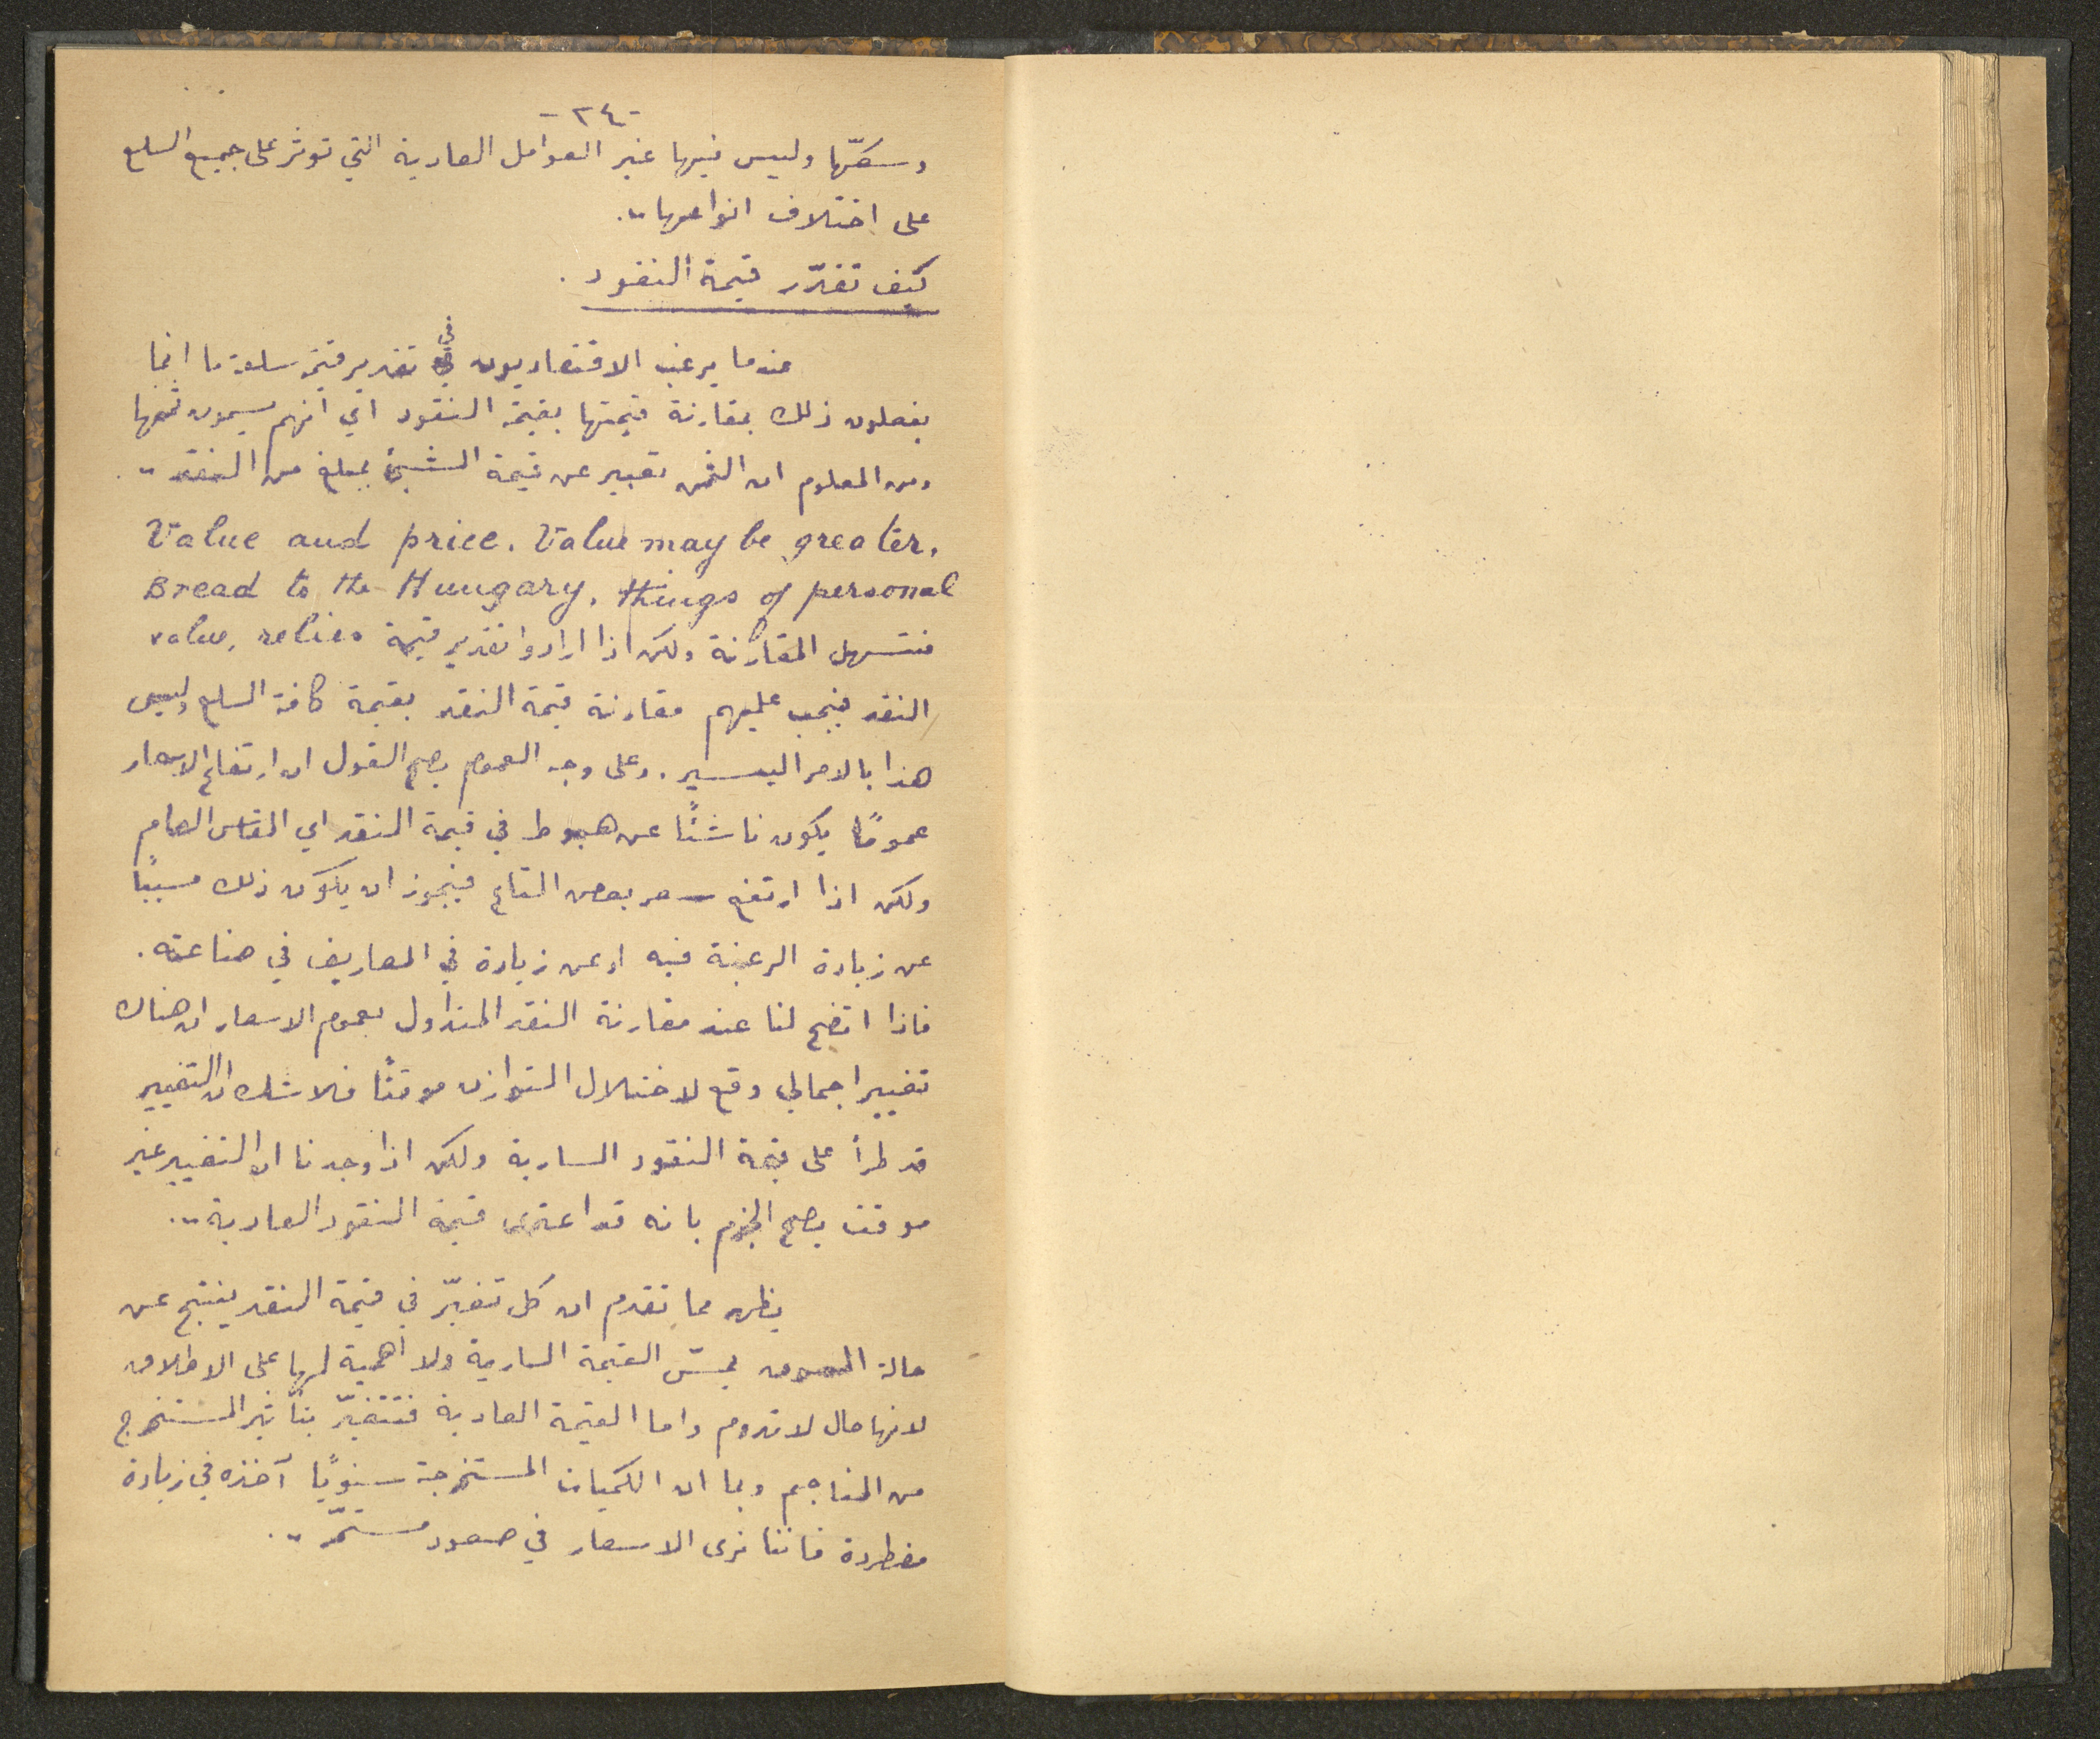 -٢٤-
وسكّها وليس فيها غير العوامل العادية التي تؤثر على جميع السلع
على اختلاف انواعها..
كيف تقدّر قيمة النقود.
عندما يرغب الاقتصاديون في تقدير قيمة سلعة ما انما
يفعلون ذلك بمقارنة قيمتها بقيمة النقود اي انهم يسمون ثمنها
ومن المعلوم ان الثمن تعبير عن قيمة الشيئ بمبلغ من النقد..
Value and price. Value may be greater.
Bread to the Hungary, things of personal
value, relics
فتسهل المقارنة ولكن اذا ارادوا تقدير قيمة
النقد فيجب عليهم مقارنة قيمة النقد بقيمة كافة السلع وليس
هذا بالامر اليسير. وعلى وجه العموم يصح القول ان ارتفاع الاسعار
عمومًا يكون ناشئًا عن هبوط في قيمة النقد اي العام
ولكن اذا ارتفع سعر بعض فيجوز ان يكون ذلك مسببًا
عن زيادة الرغبة فيه او عن زيادة في المصاريف في صناعته.
فاذا اتضح لنا عند مقارنة النقد المتداول بعموم الاسعار ان هناك
تغيير اجمالي وقع لاختلال التوازن موقتًا فلا شك ان التغيير
قد طرأ على قيمة النقود السارية ولكن اذا وجدنا ان التغيير غير
موقت يصح الجزم بانه قد اعترى قيمة النقود العادية..
يظهر مما تقدم ان كل تغيّر في قيمة النقد ينتج عن
حالة السوق يمسّ القيمة السارية ولا اهمية لها على الاطلاق
لانها حال لا تدوم واما القيمة العادية فتتغيّر بتأثير المستخرج
من المناجم وبما ان الكميات المستخرجة سنويًا آخذه في زيادة
مضطردة فاننا نرى الاسعار في صعود مستمّر..